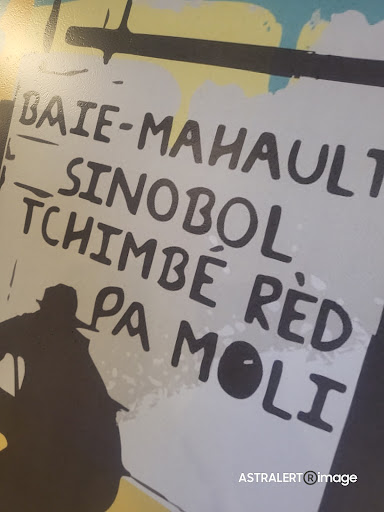 BAIE-MAHAULT
SINOBOL
TCHIMBÉ RÈD
PA MOLI
ASTRALERT®image